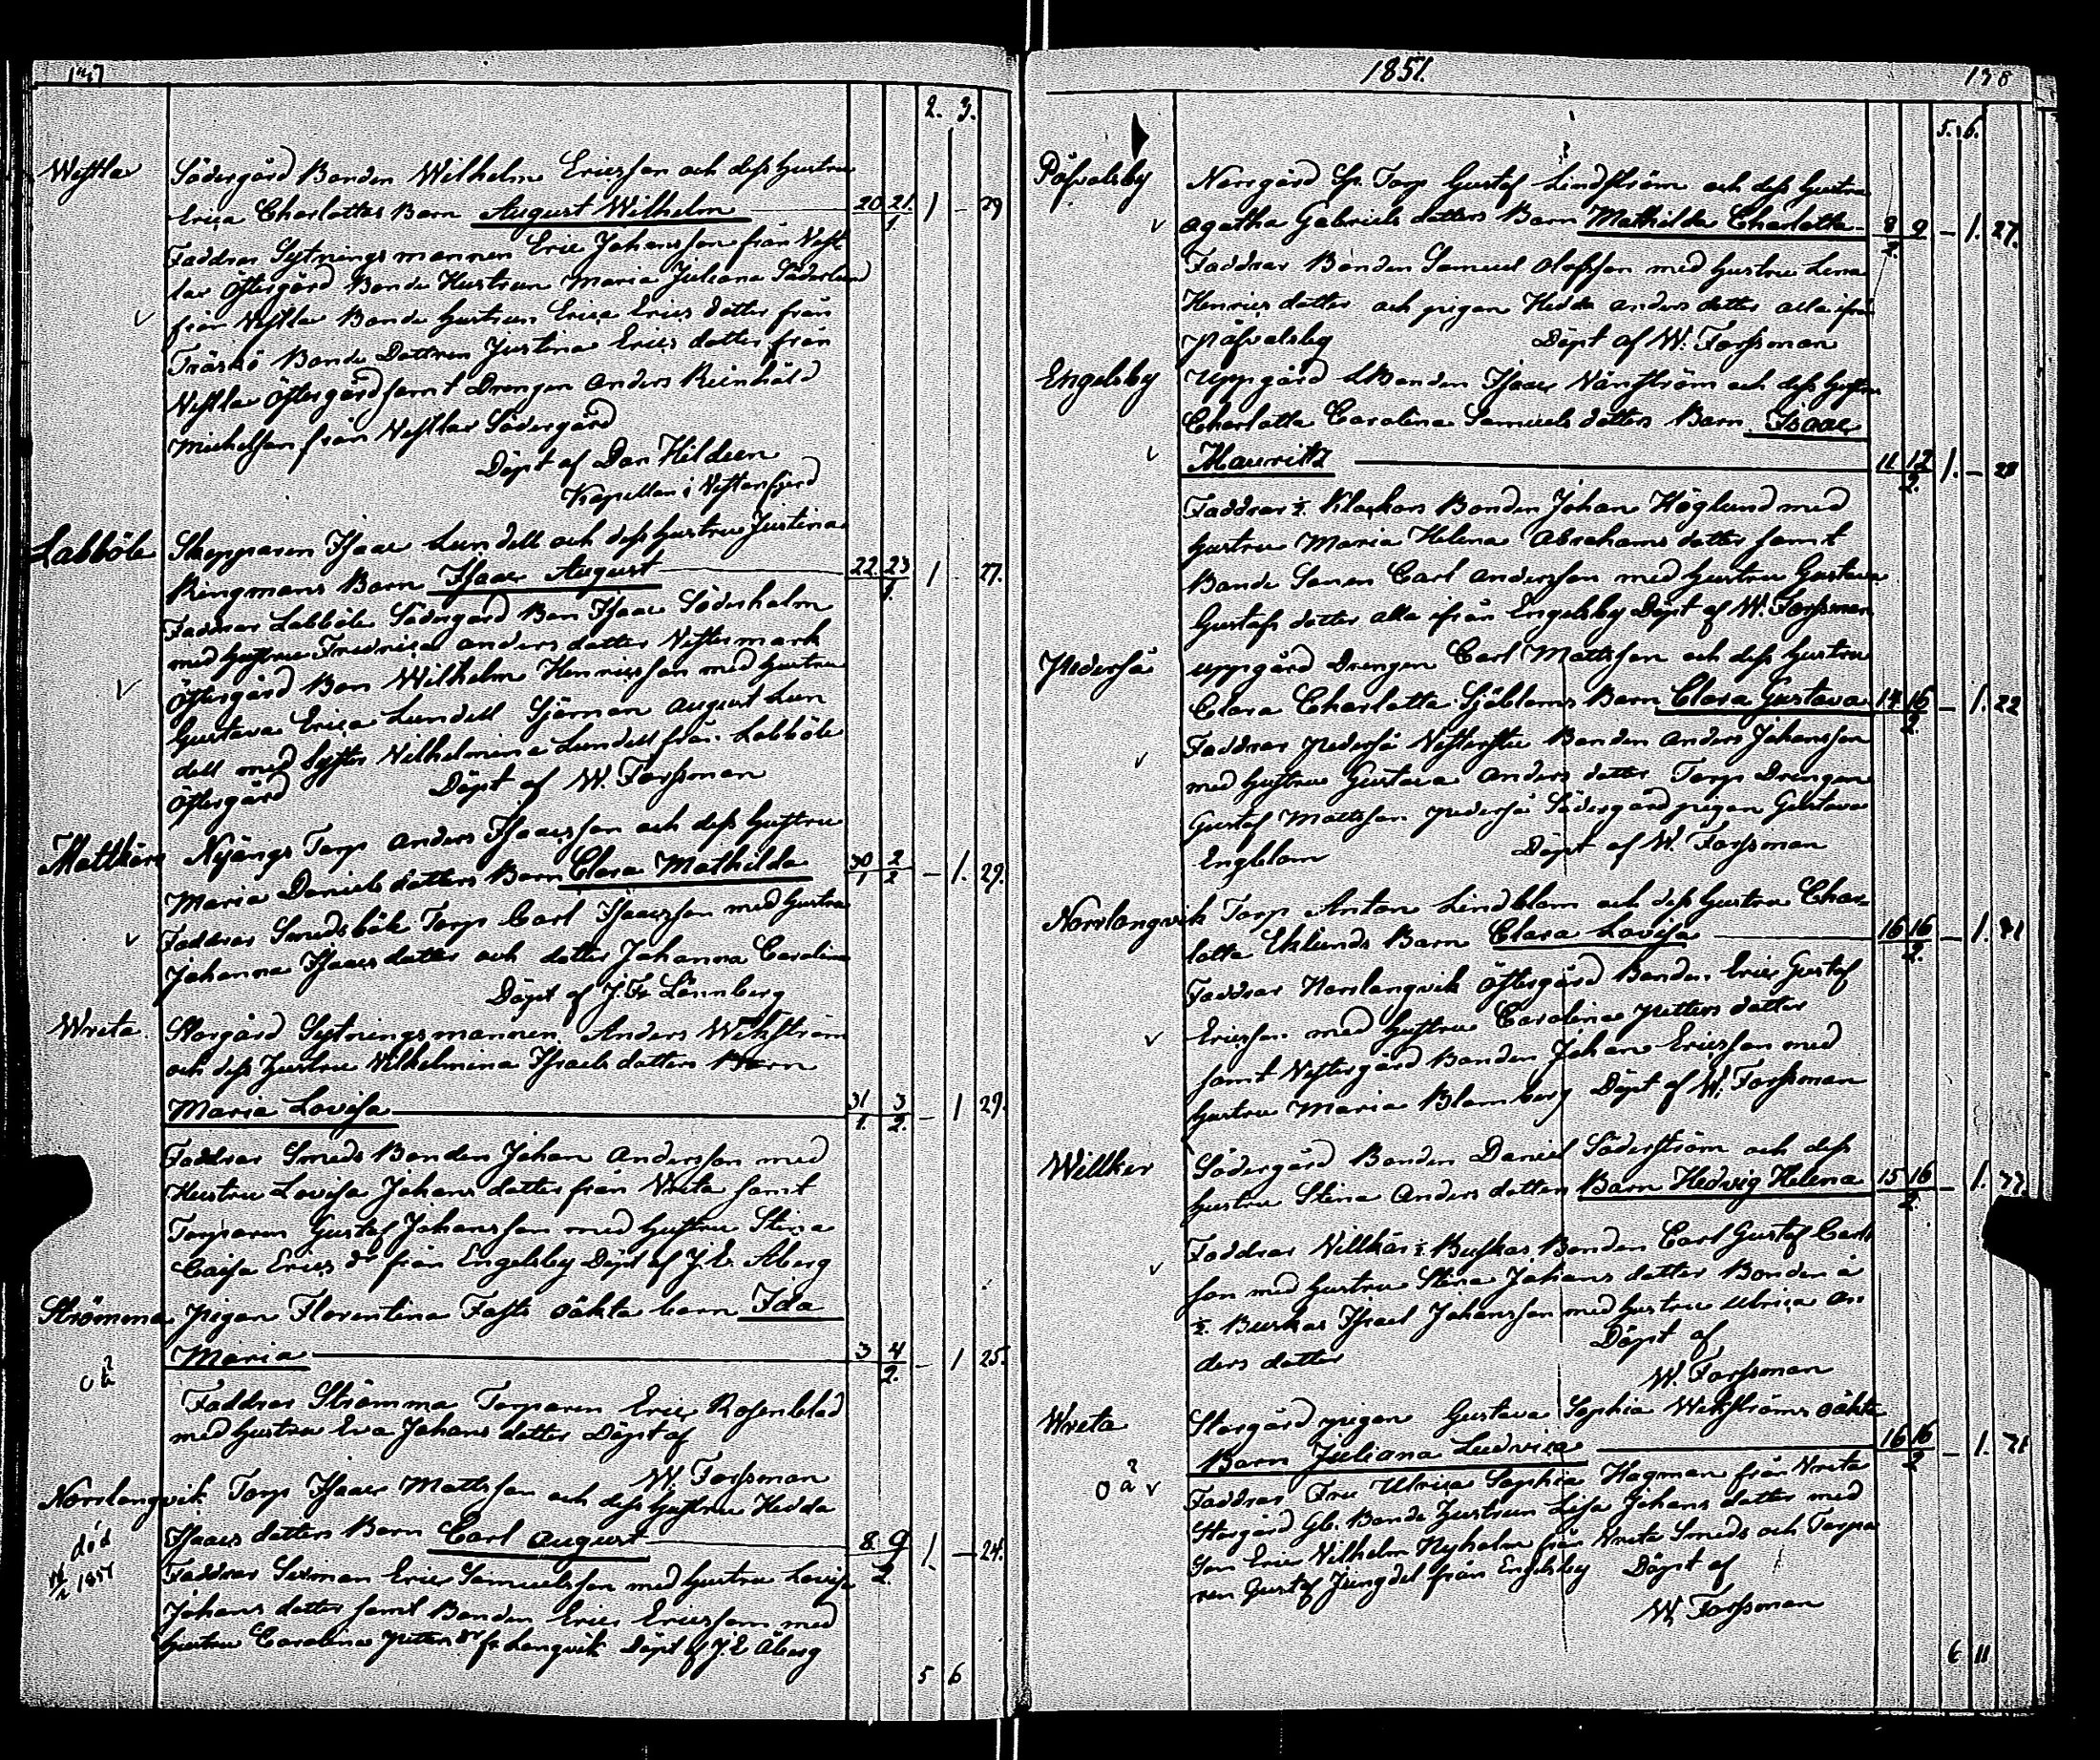 137
2. 3.
Westlax Södergård Bonden Wilhelm Ericsson och dess hustru
Erica Charlottas Barn August Wilhelm 20 21/1. 1 – 29
Faddrar Sytningsmannen Eric Johansson från Vest
lax Östergård Bonde Hustrun Maria Juliana Söderlund
från Vestlax Bonde hustrun Erica Erics dotter från
Träskö Bonde Dottren Justina Erics dotter från
Vestlax Östergård samt Drengen Anders Reinhåld
Michelsson från Vestlax Södergård
Döpt af Dan Hildeen
Kapellan i Vestanfjerd
Labböle Skepparen Isaac Lundell och dess hustru Justina
Ringmans Barn Isaac August 22. 23/1. 1 27.
Faddrar Labböle Södergård Bon Isaac Söderholm
med hustru Fredrica Anders dotter Vestermark
Östergård Bon Wilhelm Henricsson med hustru
Gustava Erica Lundell Sjöman August Lun
dell med Syster Vilhelmina Lundell från Labböle
Östergård Döpt af W. Forssman
Mattkärr Nyängs Torp Anders Isaacsson och dess hustru
Maria Daniels dotters Barn Clara Mathilda 30/1 2/2 – 1. 29.
Faddrar Smedsböle Torp Carl Isaacsson med hustru
Johanna Isaacs dotter och dotter Johanna Carolina
Döpt af J. Fr Lönnberg
Wreta. Storgård Sytningsmannen Anders Wikström
och dess hustru Vilhelmina Israels dotters Barn
Maria Lovisa 31/1. 3/2. – 1 29.
Faddrar Smeds Bonden Johan Andersson med
Hustru Lovisa Johans dotter från Vreta samt
Torparen Gustaf Johansson med hustru Stina
Caisa Erics dr från Engelsby Döpt af J. E. Åberg
Strömma pigan Florentina Fasts oäkta barn Ida
oä Maria 3 4/2. – 1 25.
Faddrar Strömma Torparen Eric Rosenblad
med hustru Eva Johans dotter Döpt af
W. Forssman
Norrlangvik Torp Isaac Mattsson och dess hustru Hedda
död Isaacs dotters Barn Carl August 8 9/2. 1. – 24.
1851 Faddrar Sexman Eric Samuelsson med hustru Lovisa
Johans dotter samt Bonden Eric Ericsson med
hustru Carolina Petters dr fr. Langvik Döpt af J. E Åberg
5 6
1851. 138
5. 6.
Påfvalsby Norrgård Sp. Torp Gustaf Lindström och dess hustru
Agatha Gabriels dotters Barn Mathilda Charlotta 8/2. 9 – 1. 27.
Faddrar Bonden Samuel Olofsson med hustru Lena
Henrics dotter och pigan Hedda Anders dotter alla ifrån
Påfvalsby Döpt af W. Forssman
Engelsby Uppgård Bonden Isaac Nänström och dess hustru
Charlotta Carolina Samuels dotters Barn Isaac
Mauritz 11 12/2. 1. – 28
Faddrar ½ Klockars Bonden Johan Höglund med
hustru Maria Helena Abrahams dotter samt
Bonde Sonen Carl Andersson med hustru Gustava
Gustafs dotter alla ifrån Engelsby Döpt af W. Forssman
Pederså Uppgård Drengen Carl Mattsson och dess hustru
Clara Charlotta Sjöbloms Barn Clara Gustava 14 16/2. – 1. 22
Faddrar Pederså Bonden Anders Johansson
med hustru Gustava Anders dotter Torp Drengen
Gustaf Mattsson Pederså Södergård pigan Gustava
Engblom Döpt af W. Forssman
Norrlangvik Torp Anton Lindblom och dess hustru Char
lotta Eklunds Barn Clara Lovisa 16 16/2. – 1.
Faddrar Norrlangvik Östergård Bonden Eric Gustaf
Ericsson med hustru Carolina Petters dotter
samt Vestergård Bonden Johan Ericsson med
hustru Maria Blomberg Döpt af W. Forssman
Willker Södergård Bonden Daniel Söderström och dess
hustru Stina Anders dotters Barn Hedvig Helena 15 16/2. – 1.
Faddrar Villkär ½ Buskas Bonden Carl Gustaf Carls
son med hustru Stina Johans dotter Bonden å
½. Buskas Israel Johansson med hustru Ulrica An
ders dotter Döpt af
W. Forssman
Wreta Storgård pigan Gustava Sophia Wikströms oäkta
Barn Juliana Ludvica 16 16/2 – 1.
oä Faddrar Fru Ulrica Sophia Hagman från Vreta
Storgård Gl. Bonde hustrun Lisa Johans dotter med
Son Eric Vilhelm Nyholm från Vreta Smeds och Torpa
ren Gustaf Ljungdel från Engelsby Döpt af
W. Forssman
6 11